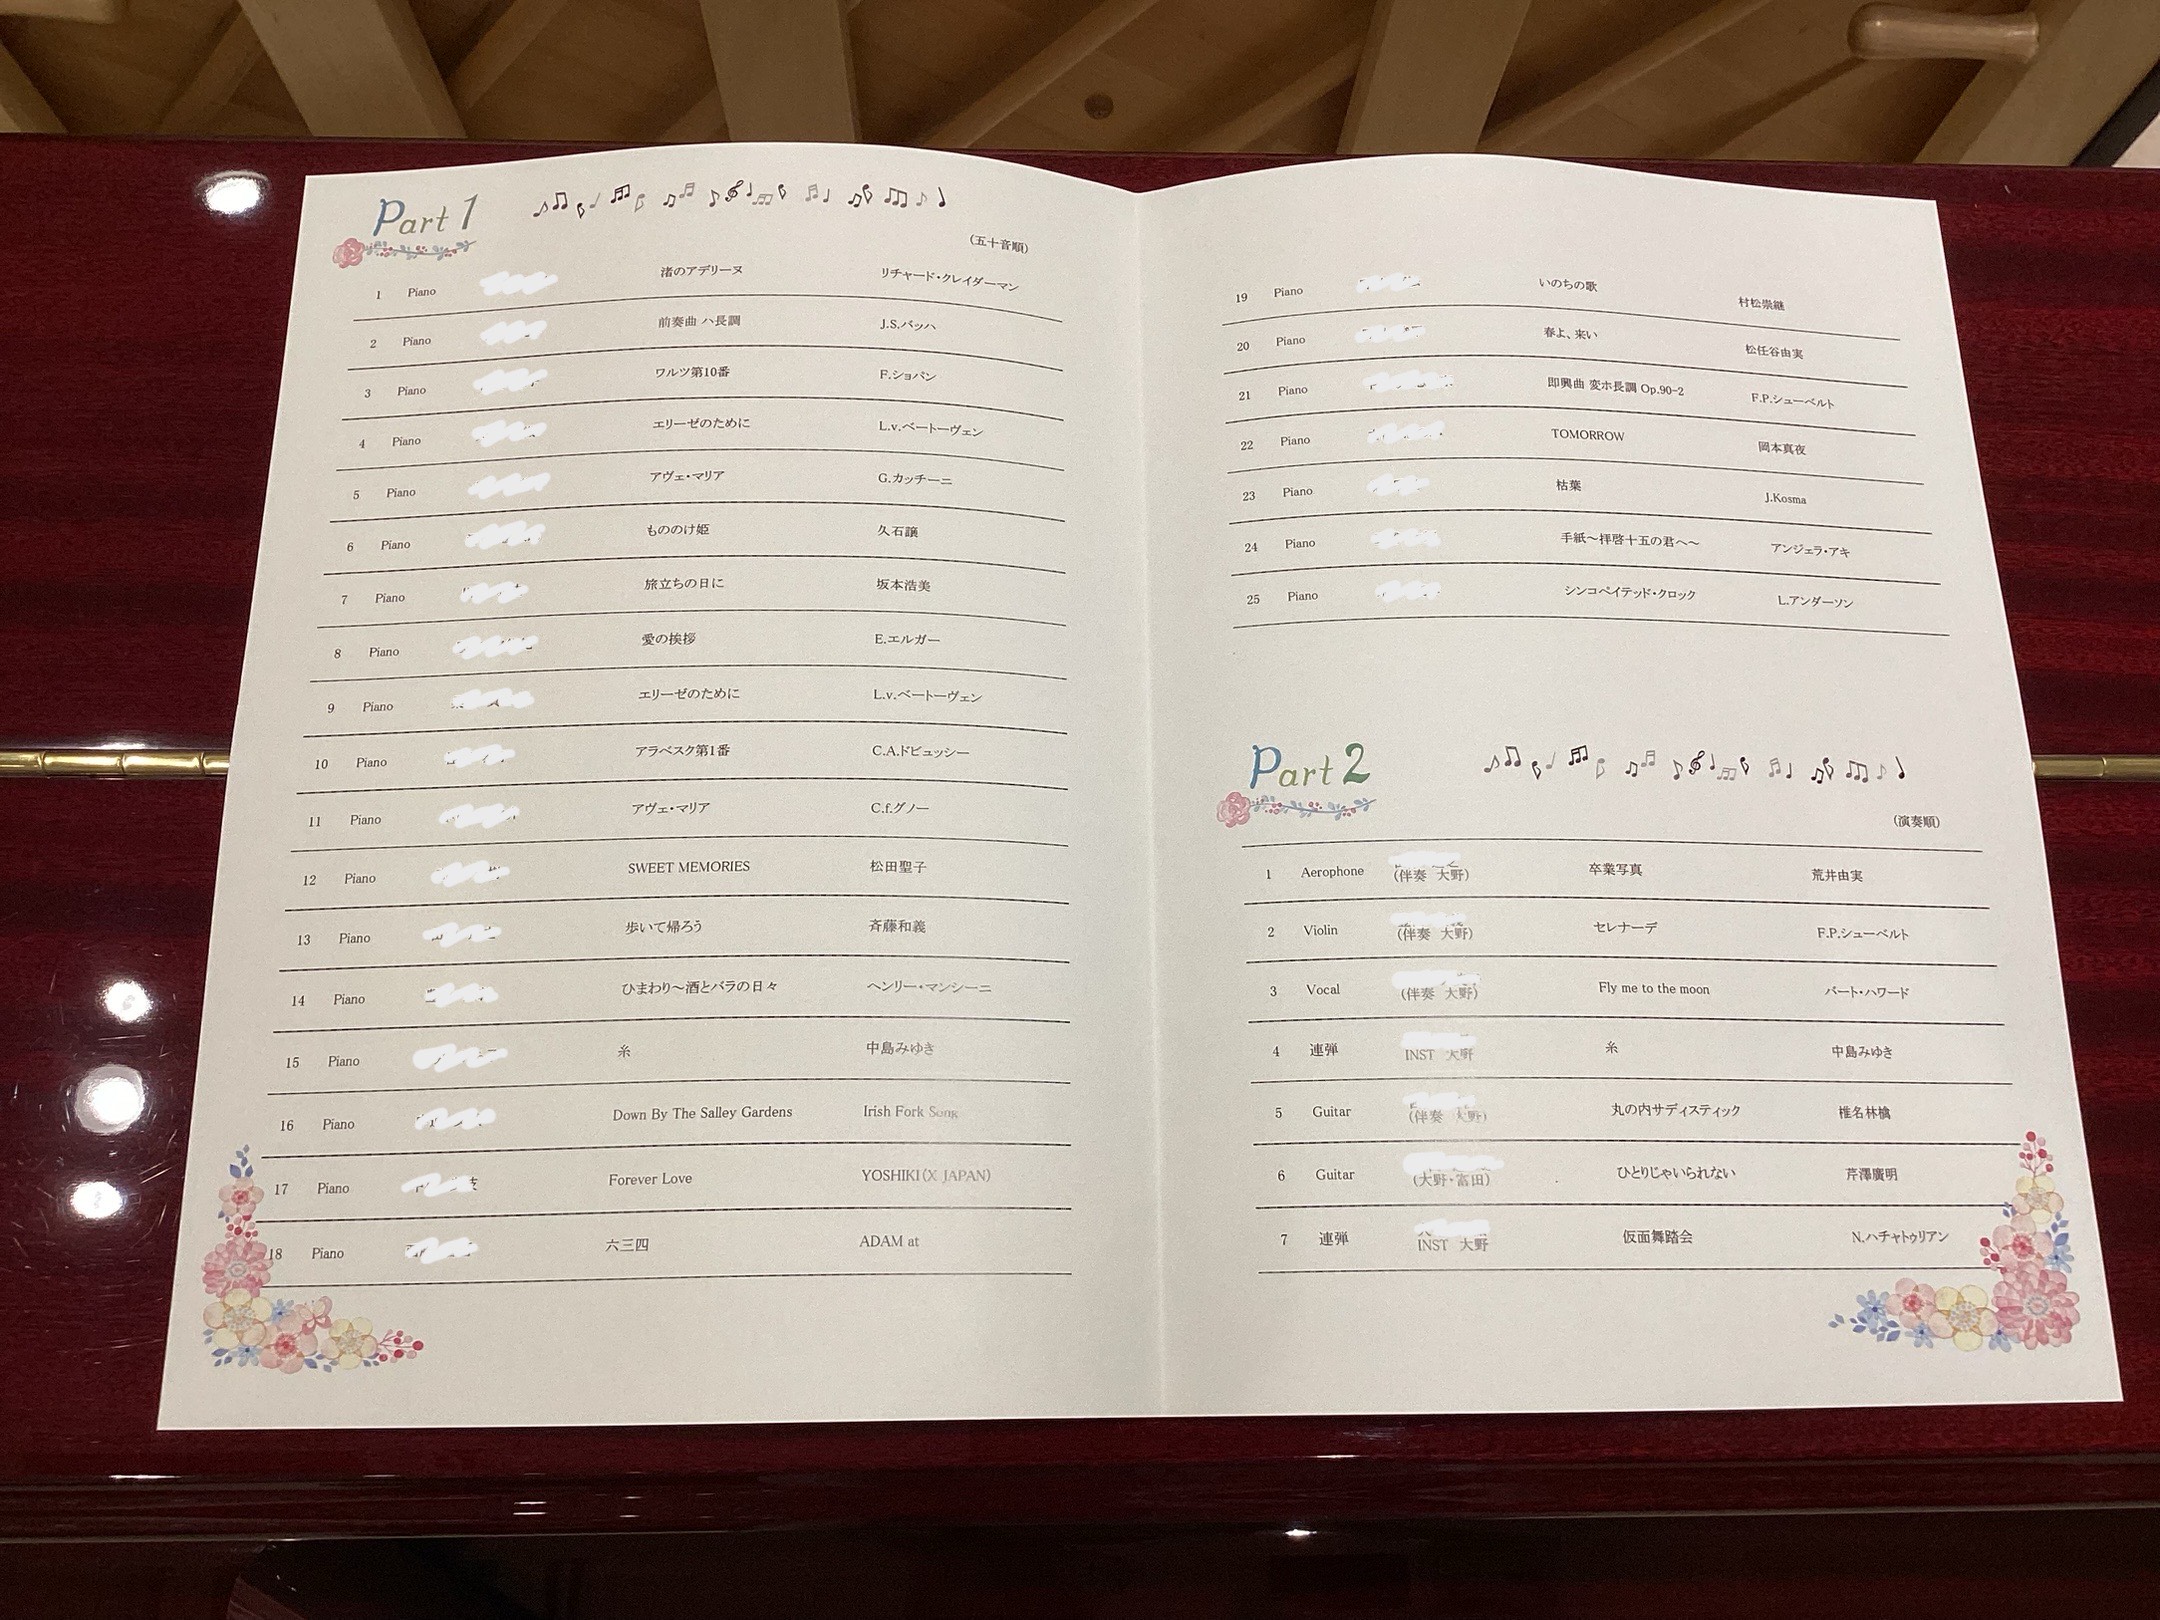 Part 1
(五十音順)
1 Piano 渚のアデリーヌ リチャード・クレイダーマン
2 Piano 前奏曲 ハ長調 J.S.バッハ
3 Piano ワルツ第10番 F.ショパン
4 Piano エリーゼのために L.v.ベートーヴェン
5 Piano アヴェ・マリア G.カッチーニ
6 Piano もののけ姫 久石譲
7 Piano 旅立ちの日に 坂本浩美
8 Piano 愛の挨拶 E.エルガー
9 Piano エリーゼのために L.v.ベートーヴェン
10 Piano アラベスク第1番 C.A.ドビュッシー
11 Piano アヴェ・マリア C.f.グノー
12 Piano SWEET MEMORIES 松田聖子
13 Piano 歩いて帰ろう 斉藤和義
14 Piano ひまわり～酒とバラの日々 ヘンリー・マンシーニ
15 Piano 糸 中島みゆき
16 Piano Down By The Salley Gardens Irish Fork Song
17 Piano Forever Love YOSHIKI(X JAPAN)
18 Piano 六三四 ADAM at
19 Piano いのちの歌 村松崇継
20 Piano 春よ、来い 松任谷由実
21 Piano 即興曲 変ホ長調 Op.90-2 F.P.シューベルト
22 Piano TOMORROW 岡本真夜
23 Piano 枯葉 J.Kosma
24 Piano 手紙～拝啓十五の君へ～ アンジェラ・アキ
25 Piano シンコペイテッド・クロック L.アンダーソン
Part 2
(演奏順)
1 Aerophone (伴奏 大野) 卒業写真 荒井由実
2 Violin (伴奏 大野) セレナーデ F.P.シューベルト
3 Vocal (伴奏 大野) Fly me to the moon バート・ハワード
4 連弾 INST 大野 糸 中島みゆき
5 Guitar (伴奏 大野) 丸の内サディスティック 椎名林檎
6 Guitar (大野・富田) ひとりじゃいられない 芹澤廣明
7 連弾 INST 大野 仮面舞踏会 N.ハチャトゥリアン